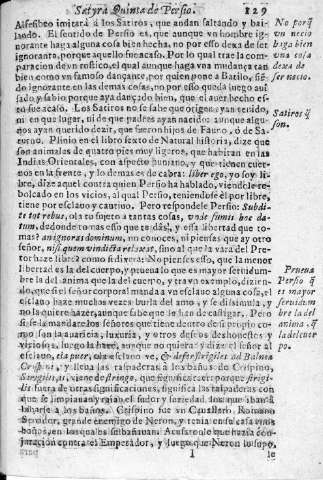 Satyra Quinta de Persio. 129
Alfesibeo imitarà à los Satiros, que andan saltando y bai-
lando. El sentido de Persio es, que aunque vn hombre ig-
norante haga alguna cosa bien hecha, no por esso dexa de ser
ignorante, porque aquello fue acaso. Por lo qual trae la com-
paracion de vn rustico, el qual aunque haga vna mudança tan
bien como vn gentil dançante, por quien pone a Batilo, sien-
do ignorante en las demas cosas, no por esso queda luego auisa-
do y sabio porque aya dançado bien, que el auer hecho esso
fue acaso. Los Satiros no se sabe que origen ayan tenido,
ni en que lugar, ni de que padres ayan nacido: aunque algu-
nos ayan querido dezir, que fueron hijos de Fauno, ò de Sa-
turno. Plinio en el libro sexto de Natural historia, dize que
son animales de quatro pies muy ligeros, que habitan en las
Indias Orientales, con aspecto humano, y que tienen cuer-
nos en la frente, y lo demas es de cabra: liber ego, yo soy li-
bre, dize aquel contra quien Persio ha hablado, viendole re-
bolcado en los vicios, al qual Persio, teniendose el por libre,
tiene por esclauo y cautiuo. Pero respondele Persio: Subdi-
te tot rebus, ola tu sujeto a tantas cosas, vnde sumis hoc da-
tum, de donde tomas esso que te das, y essa libertad que to-
mas? an ignoras dominum, no conoces, ni piensas que ay otro
señor, nisi quem vindicta relaxat, sino al que la vara del Pre-
tor haze libre? como si dixera: No pienses esso, que la menor
libertad es la del cuerpo, y prueua lo que es mayor seruidum-
bre la del anima que la del cuerpo, y trae vn exemplo, dizien-
do, que si el señor mandara a vn esclauo alguna cosa, el
esclauo haze muchas vezes burla del amo, y se dissimula, y no
lo quiere hazer, aunque sabe que le han de castigar. Pero
si se lo mandan los señores que tiene dentro de su proprio cuer-
po son la auaricia, luxuria, y otros desseos deshonestos y
viciosos, luego lo hara, aunque no quiera: y dize el señor al
esclauo, eia puer, ola esclauo ve, & defer strigiles ad Balnea
Crispini, y lleua las raspaderas à los baños de Crispino,
Strigilis, viene de stringo, que significa
fuera de otras significaciones, significa las raspaderas con
que se limpiauan y raian el sudor y suziedad, los que iban à
bañarse à los baños. Crispino fue vn Cauallero, Romano
Senador, grande enemigo de Neron, y tenia en su casa vnos
baños, en los quales se bañauan. Acusaronle que hazia con-
juracion contra el Emperador, y luego que Neron lo supo,
I le
No porq̃
vn necio
haga bien
vna cosa
dexa de
ser necio.
Satiros q̃
son.
Prueua
Persio q̃
es mayor
seruidum
bre la del
anima, q̃
la del cuer
po.